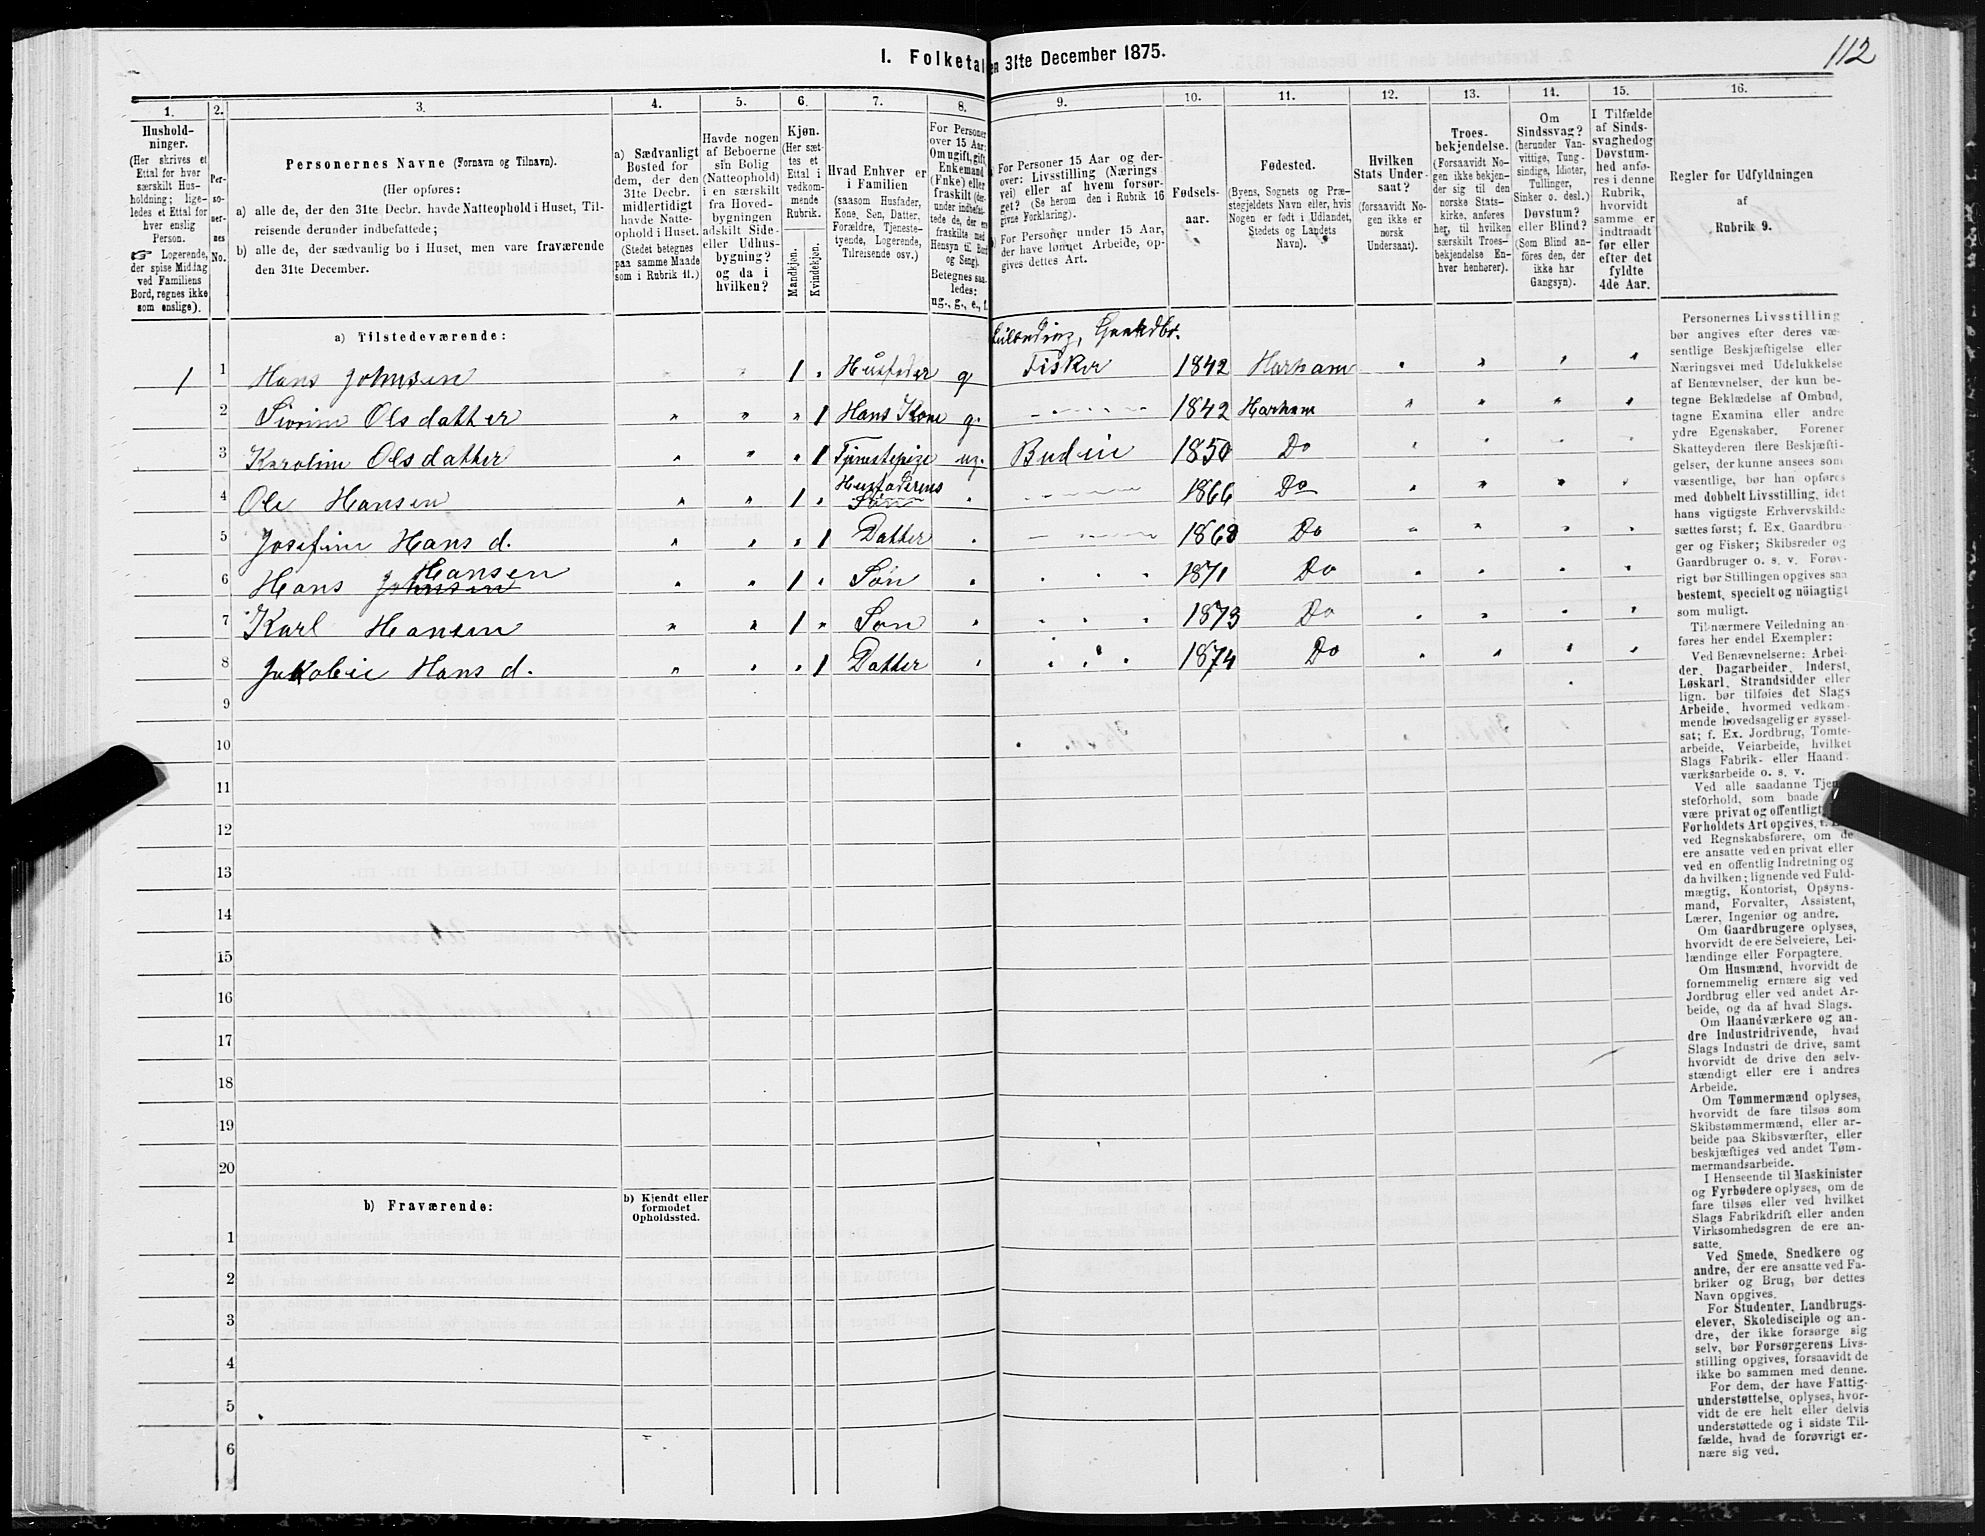 112
1. Folketal
en 31te December 1875.
1. 2. 3. 4. 5. 6. 7. 8. 9. 10. 11. 12. 13. 14. 15. 16.
Hushold-
ninger.
(Her skrives et
Ettal for hver
særskilt Hus-
holdning; lige-
ledes et Ettal for
hver enslig
Person.
☞ Logerende,
der spise Middag
ved Familiens
Bord, regnes ikke
som enslige).
Per-
so-
ner-
nes
No.
Personernes Navne (Fornavn og Tilnavn).
(Her opføres:
a) alle de, der den 31te Decbr. havde Natteophold i Huset, Til-
reisende derunder indbefattede;
b) alle de, der sædvanlig bo i Huset, men vare fraværende
den 31te December.
a) Sædvanligt
Bosted for
dem, der den
31te Decbr.
midlertidigt
havde Natte-
ophold i Huset.
(Stedet betegnes
paa samme Maade
som i Rubrik 11.)
Havde nogen
af Beboerne
sin Bolig
(Natteophold)
i en særskilt
fra Hoved-
bygningen
adskilt Side-
eller Udhus-
bygning?
og da i
hvilken?
Kjøn.
(Her sæt-
tes et
Ettal i
vedkom-
mende
Rubrik.
Mandkjøn.
Kvindekjøn.
Hvad Enhver er
i Familien
(saasom Husfader,
Kone, Søn, Datter,
Forældre, Tjeneste-
tyende, Logerende,
Tilreisende osv.)
For Personer
over 15 Aar:
Om ugift, gift,
Enkemand
(Enke) eller
fraskilt (der-
under indbefat-
tede de, der ere
fraskilte med
Hensyn til Bord
og Seng).
Betegnes saa-
ledes:
ug., g., e., f.
For Personer 15 Aar og der-
over: Livsstilling (Nærings
vei) eller af hvem forsør-
get? (Se herom den i Rubrik 16
givne Forklaring).
For Personer under 15 Aar,
der have lønnet Arbeide, op-
gives dettes Art.
Fødsels-
aar.
Fødested.
(Byens, Sognets og Præ-
stegjeldets Navn eller, hvis
Nogen er født i Udlandet,
Stedets og Landets
Navn).
Hvilken
Stats Under-
saat?
(forsaavidt No-
gen ikke er
norsk
Undersaat).
Troes-
bekjendelse.
(Forsaavidt No-
gen ikke bekjen-
der sig til den
norske Stats-
kirke, anføres
her, til hvilken
særskilt Troes-
bekjendelse En-
hver henhører).
Om
Sindssvag?
(herunder Van-
vittige, Tung-
sindige, Idioter,
Tullinger,
Sinker o. desl.)
Døvstum?
eller Blind?
(Som Blind an-
føres den, der
ikke har
Gangsyn).
I Tilfælde
af Sinds-
svaghed og
Døvstum-
hed anfø-
res i denne
Rubrik,
hvorvidt
samme er
indtraadt
før eller
efter det
fyldte
4de Aar.
Regler for Udfyldningen
af
Rubrik 9.
a) Tilstedeværende:
Gaardbr.
1 1 Hans Johnsen 1 Husfader g Fisker 1842 Harham
2 Olsdatter 1 Hans Kone g. 1842 Harham
3 Karoline Olsdatter 1 Tjenestepige ug. Budeie 1850 Do
4 Ole Hansen 1 Husfaderens Søn 1866 Do
5 Josefine Hans d. 1 Datter 1868 Do
6 Hans Johnsen Hansen 1 Søn 1871 Do
7 Karl Hansen 1 Søn 1873 Do
8 Jakobie Hans d. 1 Datter 1874 Do
9
10
11
12
13
14
15
16
17
18
19
20
b) Fraværende:
b) Kjendt eller
formodet
Opholdssted.
1
2
3
4
5
6
Personernes Livsstilling
bør angives efter deres væ-
sentlige Beskjæftigelse eller
Næringsvei med Udelukkelse
af Benævnelser, der kun be-
tegne Beklædelse af Ombud,
tagne Examina eller andre
ydre Egenskaber. Forener
Skatteyderen flere Beskjæfti-
gelser, der kunne ansees som
væsentlige, bør han opføres
med dobbelt Livsstilling, idet
hans vigtigste Erhvervskilde
sættes først; f. Ex. Gaardbru-
ger og Fisker; Skibsreder og
Gaardbruger o. s. v. Forøv-
rigt bør Stillingen opgives saa
bestemt, specielt og nöiagtigt
som muligt.
Til nærmere Veiledning an-
føres her endel Exempler:
Ved Benævnelserne: Arbei-
der, Dagarbeider, Inderst,
Løskarl, Strandsidder eller
lign. bør tilføies det Slags
Arbeide, hvormed vedkom-
mende hovedsagelig er syssel-
sat; f. Ex. Jordbrug, Tomte-
arbeide, Veiarbeide, hvilket
Slags Fabrik- eller Haand-
værksarbeide o. s. v.
Ved alle saadanne Tjen
steforhold, som baade
være privat og offentligt,
Forholdets Art opgives,
ved Regnskabsførere, om de
ere ansatte ved en privat eller
ved en offentlig Indretning og
da hvilken; lignende ved Fuld-
mægtig, Kontorist, Opsyns-
mand, Forvalter, Assistent,
Lærer, Ingeniør og andre.
Om Gaardbrugere oplyses,
hvorvidt de ere Selveiere, Lei-
lændinge eller Forpagtere.
Om Husmænd, hvorvidt de
fornemmelig ernære sig ved
Jordbrug eller ved andet Ar-
beide, og da af hvad Slags.
Om Haandværkere og an-
dre Industridrivende, hvad
Slags Industri de drive, samt
hvorvidt de drive den selv-
stændigt eller ere i andres
Arbeide.
Om Tømmermænd oplyses,
hvorvidt de fare tilsøs som
Skibstømmermænd, eller ar-
beide paa Skibsværfter, eller
beskjæftiges ved andet Tøm-
mermandsarbeide.
I Henseende til Maskinister
og Fyrbødere oplyses, om de
fare tilsøs eller ved hvilket
Slags Fabrikdrift eller anden
Virksomhedsgren de ere an-
satte.
Ved Smede, Snedkere og
andre, der ere ansatte ved Fa-
briker og Brug, bør dettes
Navn opgives.
For Studenter, Landbrugs-
elever, Skoledisciple og an-
dre, der ikke forsørge sig
selv, bør Forsørgerens Livs-
stilling opgives, forsaavidt de
ikke bo sammen med denne.
For dem, der have Fattig-
understøttelse, oplyses, hvor-
vidt de ere helt eller delvis
understøttede og i sidste Til-
fælde, hvad de forøvrigt er-
nære sig ved.